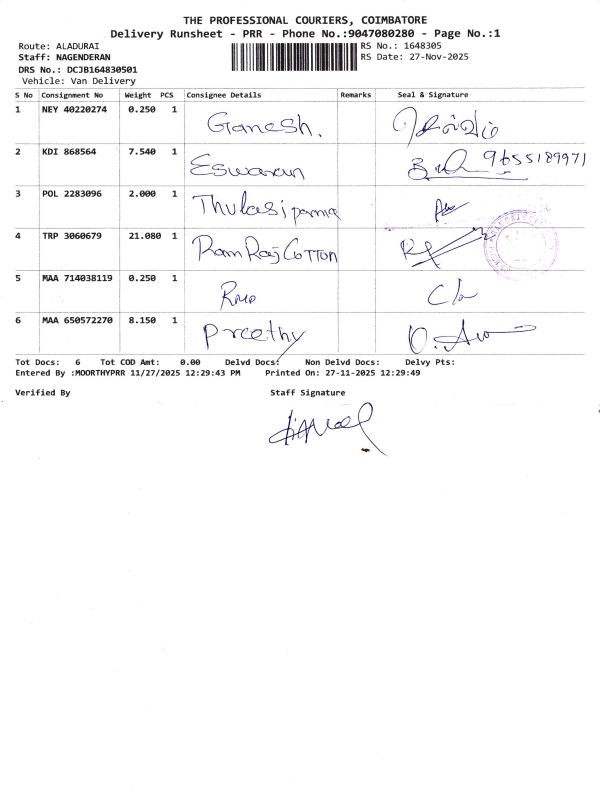 THE PROFESSIONAL COURIERS, COIMBATORE
Delivery Runsheet - PRR - Phone No.:9047080280 - Page No.:1
Route: ALADURAI RS No.: 1648305
Staff: NAGENDERAN RS Date: 27-Nov-2025
DRS No.: DCJB164830501
Vehicle: Van Delivery
S No Consignment No Weight PCS Consignee Details Remarks Seal & Signature
1 NEY 40220274 0.250 1 Ganesh.
2 KDI 868564 7.540 1 Eswaran 9655189971
3 POL 2283096 2.000 1 Thulasi
4 TRP 3060679 21.080 1 Ram Raj COTTON
5 MAA 714038119 0.250 1
6 MAA 650572270 8.150 1 Preethy
Tot Docs: 6 Tot COD Amt: 0.00 Delvd Docs: Non Delvd Docs: Delvy Pts:
Entered By :MOORTHYPRR 11/27/2025 12:29:43 PM Printed On: 27-11-2025 12:29:49
Verified By Staff Signature